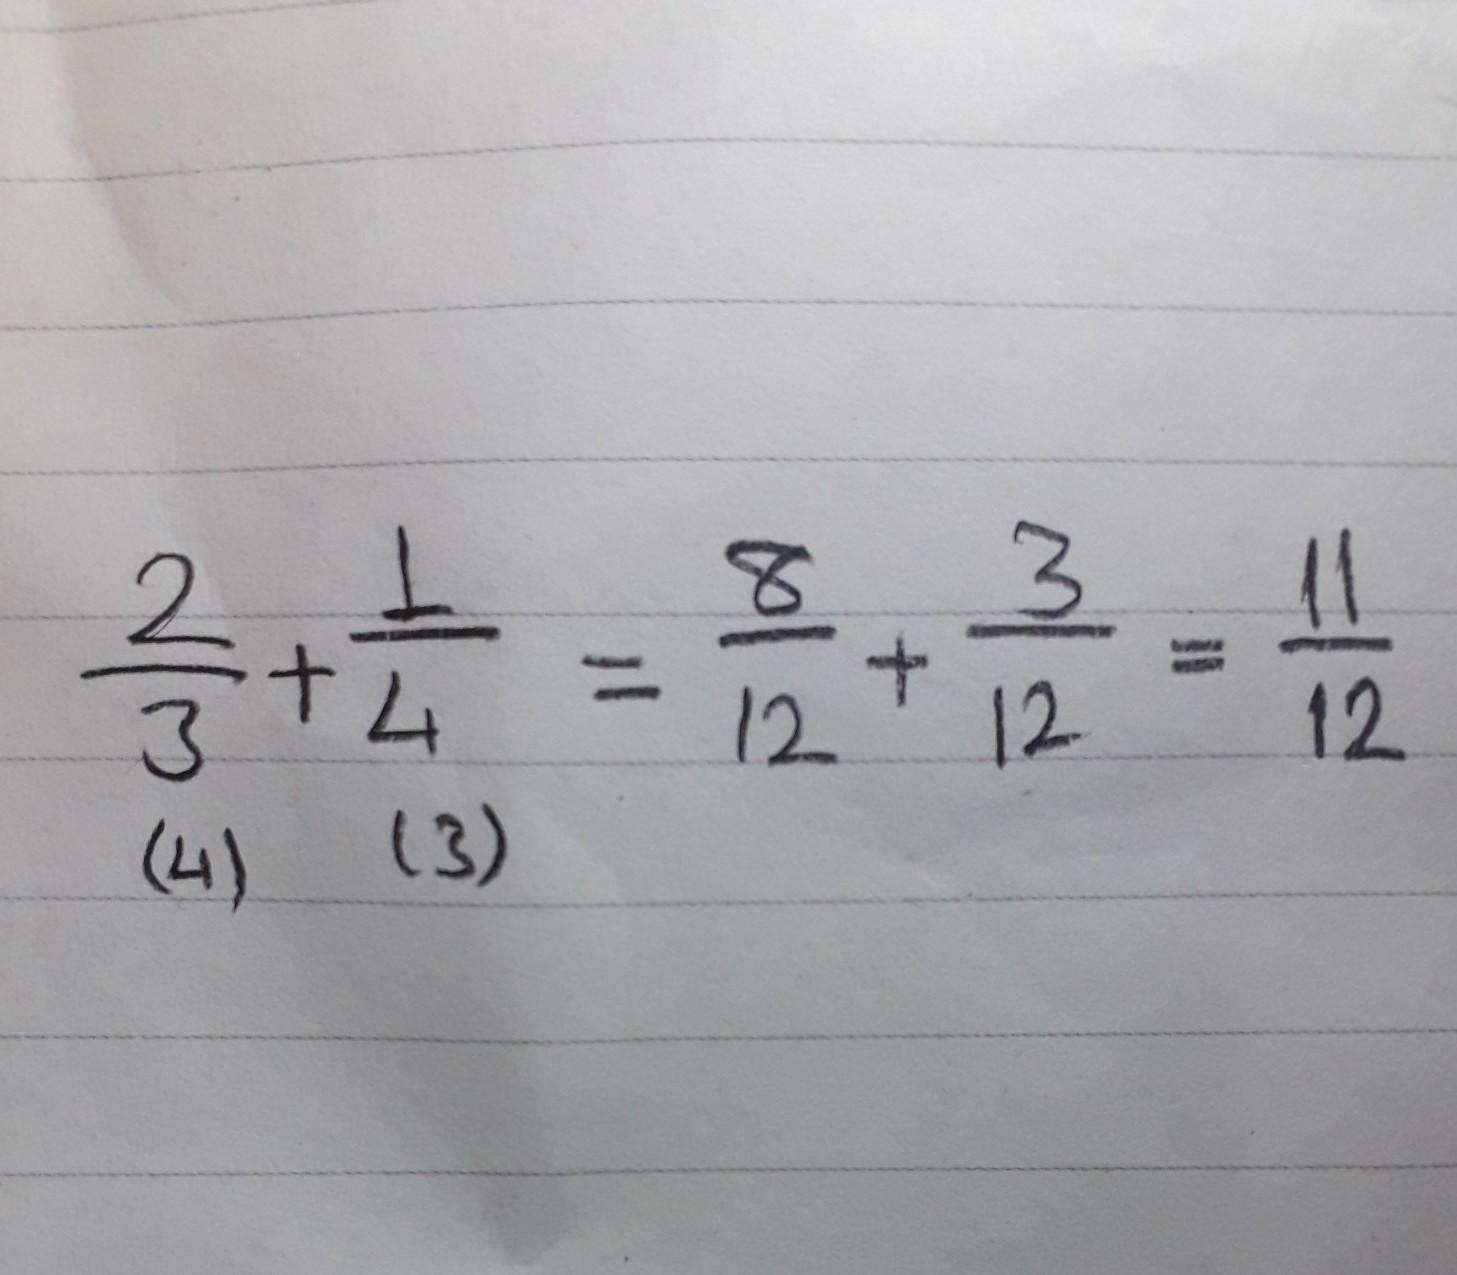 2/3 + 1/4 = 8/12 + 3/12 = 11/12
(4) (3)